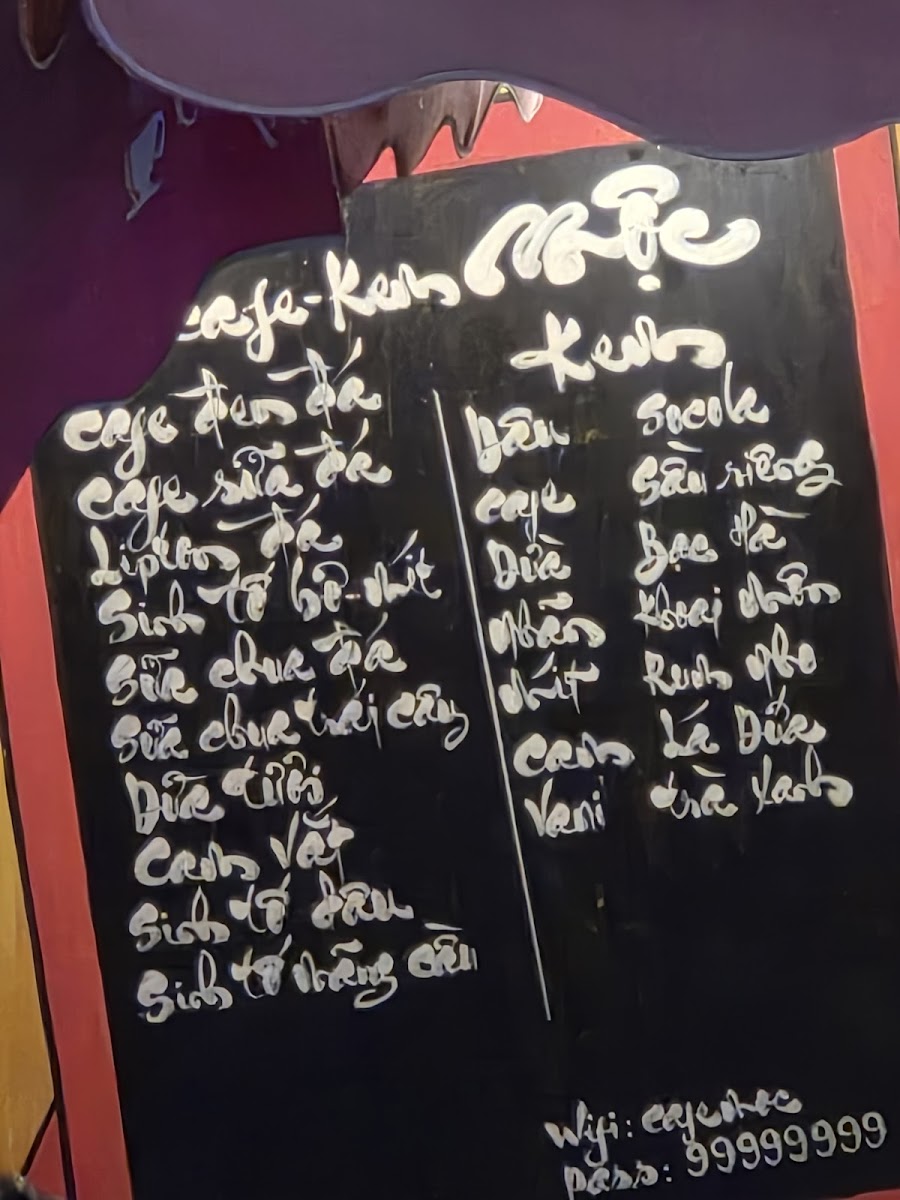 cafe-Kem Mộc
cafe đen đá
cafe sữa đá
Lipton đá
Sinh tố bơ-mít
Sữa chua đá
Sữa chua trái cây
Dừa tươi
Cam Vắt
Sinh tố dâu
Sinh tố mãng cầu
Kem
Dâu Socola
cafe Sầu riêng
Dừa Bạc Hà
Nhãn Khoai Môn
Mít Rum nho
Cam Lá Dứa
Vani trà Xanh
Wifi: cafemoc
pass: 99999999